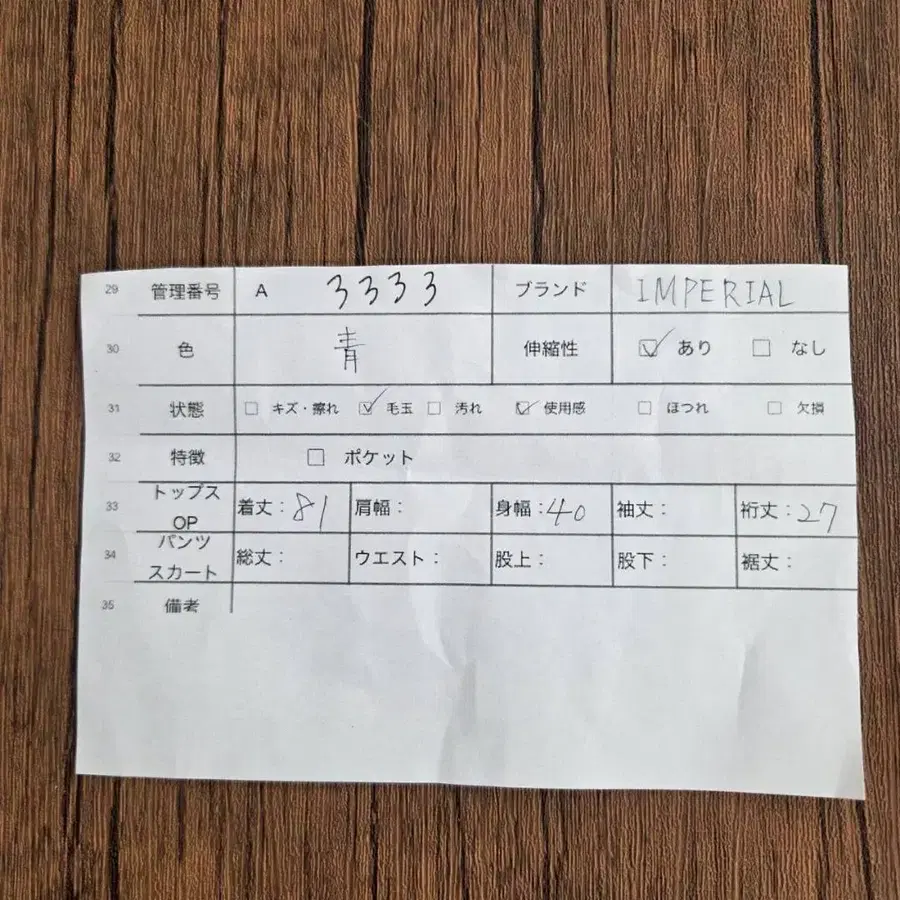 29 管理番号 A 3333 ブランド IMPERIAL
30 色 青 伸縮性 ☑ あり ☐ なし
31 状態 ☐ キズ・擦れ ☑ 毛玉 ☐ 汚れ ☑ 使用感 ☐ ほつれ ☐ 欠損
32 特徴 ☐ ポケット
33 トップス OP 着丈：81 肩幅： 身幅：40 袖丈： 裄丈：27
34 パンツ スカート 総丈： ウエスト： 股上： 股下： 裾丈：
35 備考